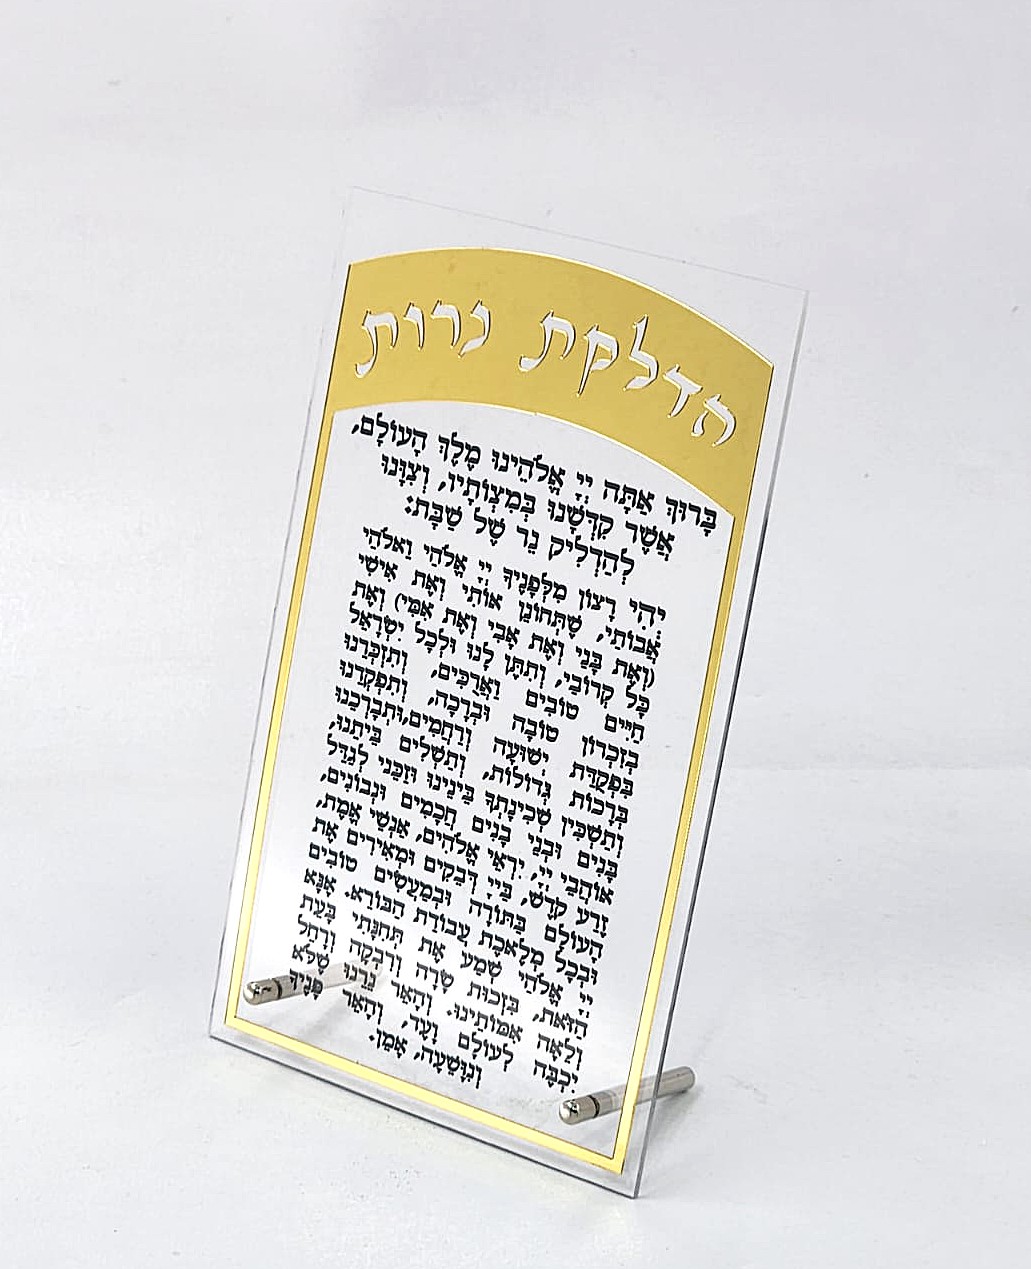 הדלקת נרות
בָּרוּךְ אַתָּה יְיָ אֱלֹהֵינוּ מֶלֶךְ הָעוֹלָם,
אֲשֶׁר קִדְּשָׁנוּ בְּמִצְוֹתָיו, וְצִוָּנוּ
לְהַדְלִיק נֵר שֶׁל שַׁבָּת:
יְהִי רָצוֹן מִלְּפָנֶיךָ יְיָ אֱלֹהַי וֵאלֹהֵי
אֲבוֹתַי, שֶׁתְּחוֹנֵן אוֹתִי וְאֶת אִישִׁי
(וְאֶת בָּנַי וְאֶת אָבִי וְאֶת אִמִּי) וְאֶת
כָּל קְרוֹבַי, וְתִתֶּן לָנוּ וּלְכָל יִשְׂרָאֵל
חַיִּים טוֹבִים וַאֲרֻכִּים, וְתִזְכְּרֵנוּ
בְּזִכְרוֹן טוֹבָה וּבְרָכָה, וְתִפְקְדֵנוּ
בִּפְקֻדַּת יְשׁוּעָה וְרַחֲמִים,וּתְבָרְכֵנוּ
בְּרָכוֹת גְּדוֹלוֹת, וְתַשְׁלִים בֵּיתֵנוּ,
וְתַשְׁכִּין שְׁכִינָתְךָ בֵּינֵינוּ וְזַכֵּנִי לְגַדֵּל
בָּנִים וּבְנֵי בָנִים חֲכָמִים וּנְבוֹנִים,
אוֹהֲבֵי יְיָ, יִרְאֵי אֱלֹהִים, אַנְשֵׁי אֱמֶת,
זֶרַע קֹדֶשׁ, בַּייָ דְּבֵקִים וּמְאִירִים אֶת
הָעוֹלָם בַּתּוֹרָה וּבְמַעֲשִׂים טוֹבִים
וּבְכָל מְלֶאכֶת עֲבוֹדַת הַבּוֹרֵא. אָנָּא
יְיָ אֱלֹהַי שְׁמַע אֶת תְּחִנָּתִי בָּעֵת
הַזֹּאת, בִּזְכוּת שָׂרָה וְרִבְקָה וְרָחֵל
וְלֵאָה אִמּוֹתֵינוּ. וְהָאֵר נֵרֵנוּ שֶׁלֹּא
יִכְבֶּה לְעוֹלָם וָעֶד, וְהָאֵר פָּנֶיךָ
וְנִוָּשֵׁעָה, אָמֵן.